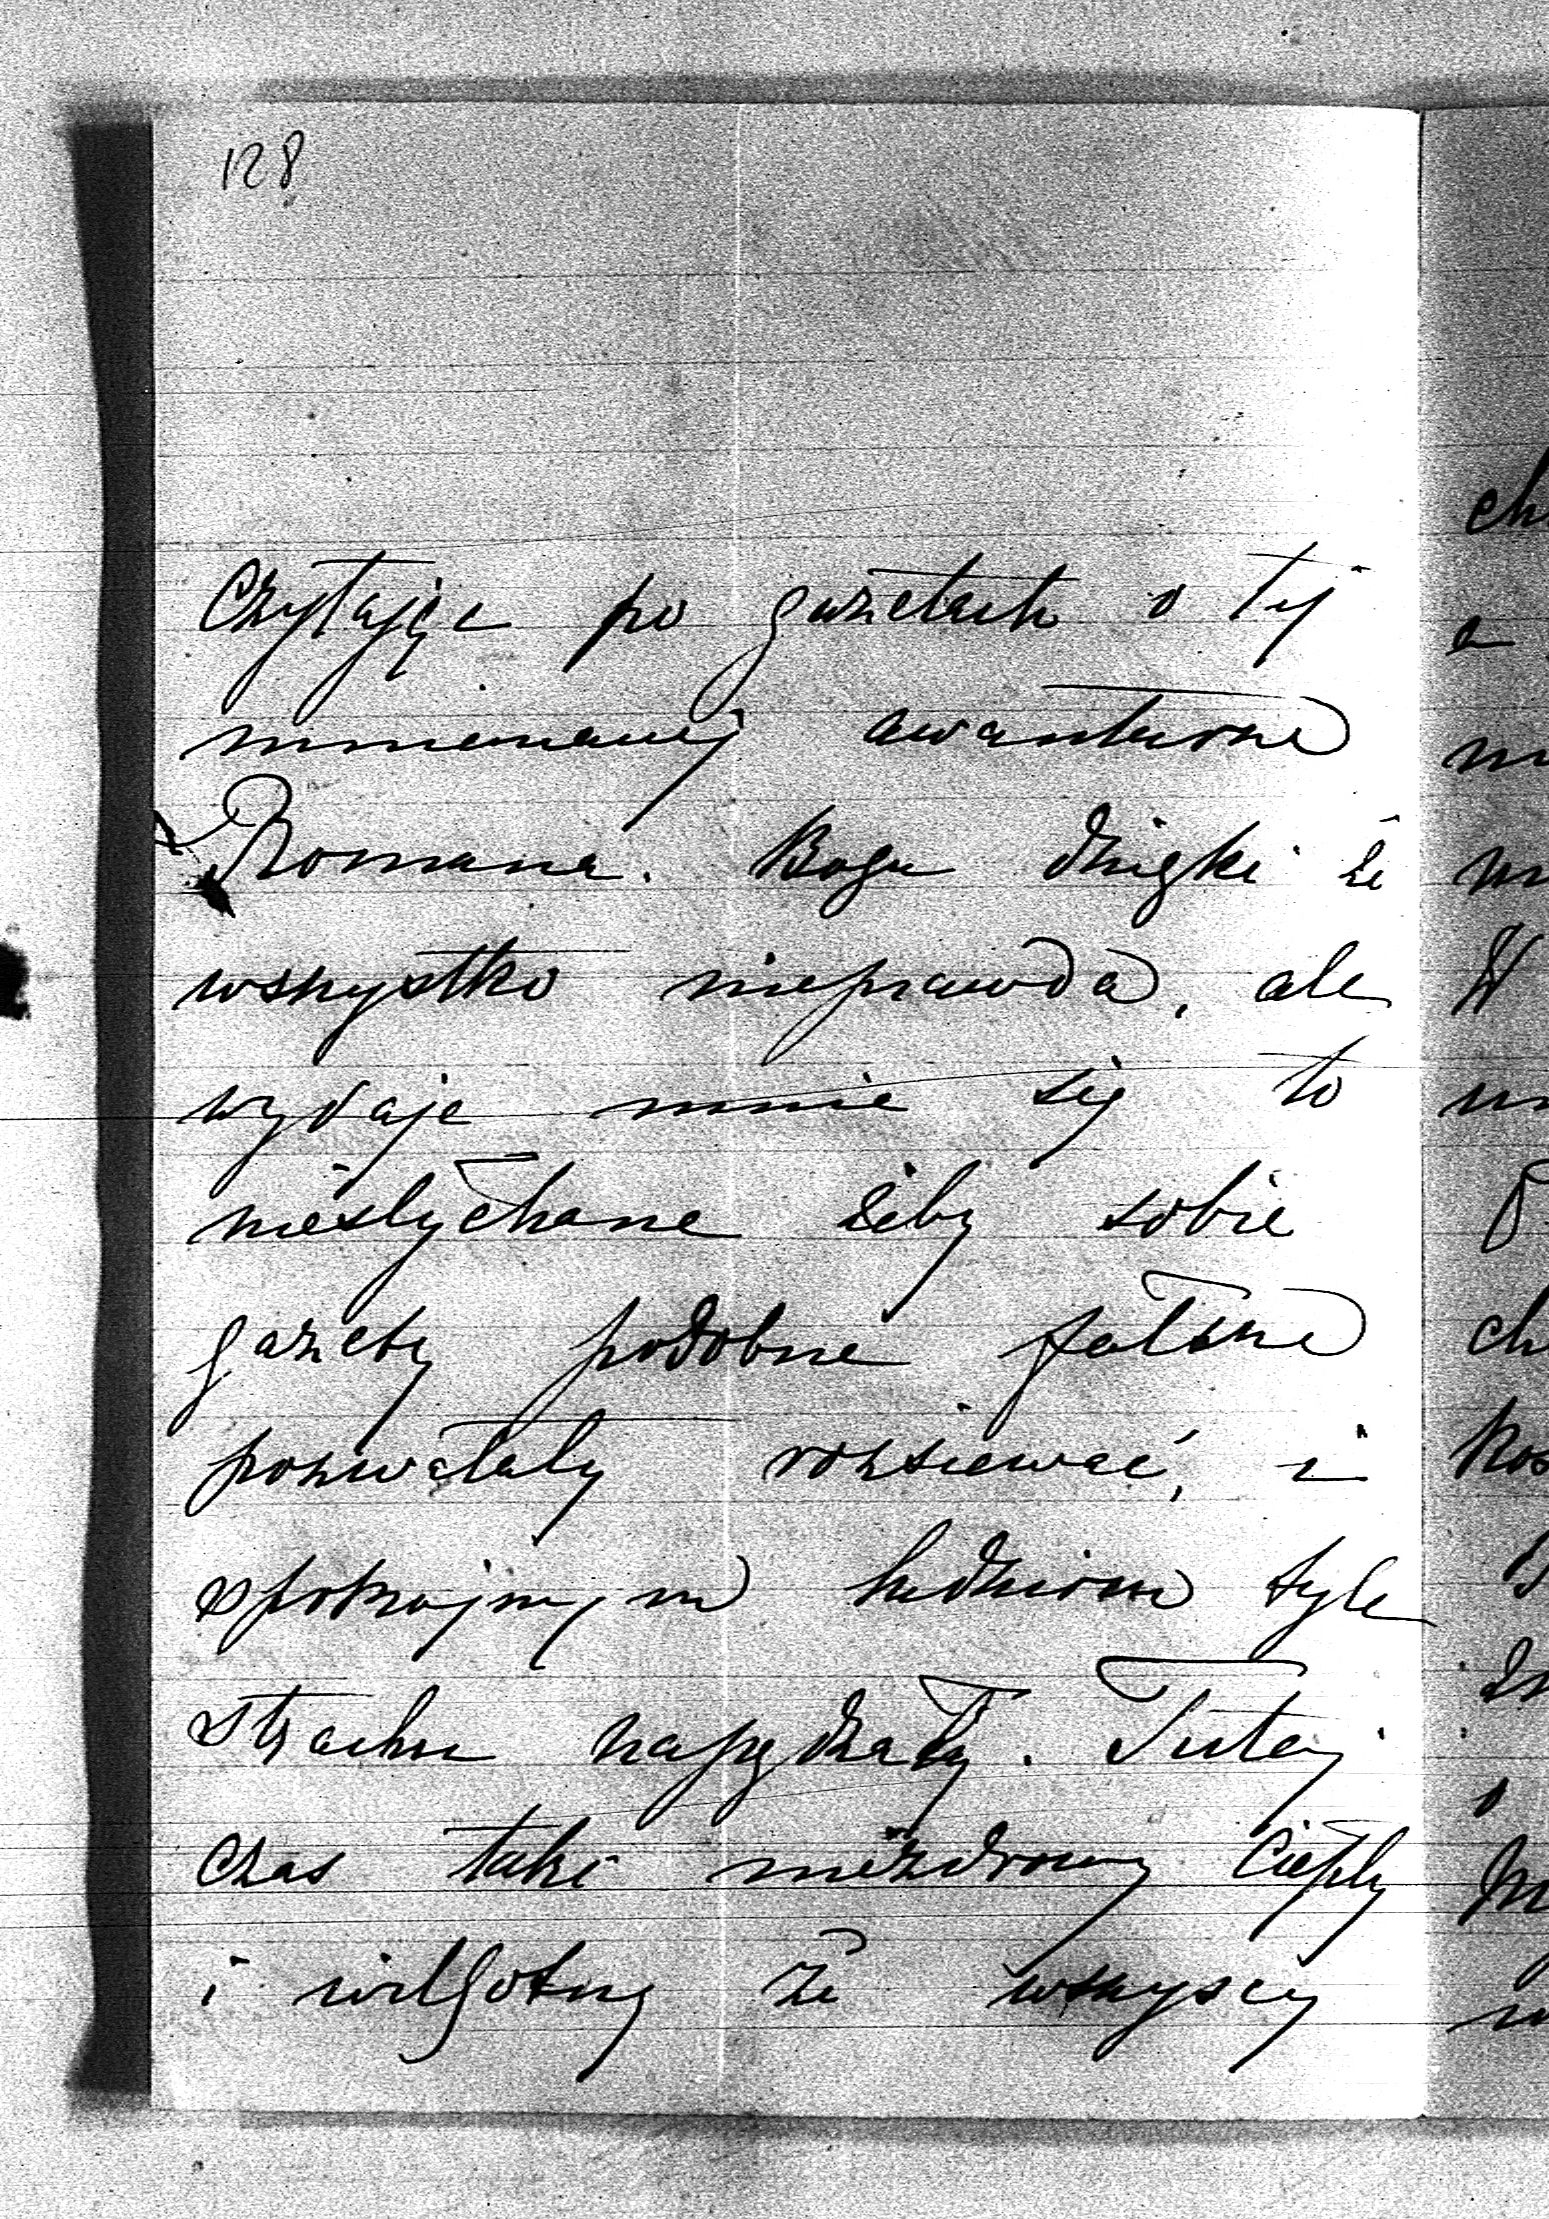 128
Czytając po gazetach o tej
mniemanej awanturze
Romana. Bogu dzięki że
wszystko nieprawda, ale
wydaje mnie się to
niesłychane żeby sobie
gazety podobne fałsze
pozwalały rozsiewać, i
spokojnym ludziom tyle
strachu napędzały. Tutaj
czas taki niezdrowy ciepły
i wilgotny że wszyscy